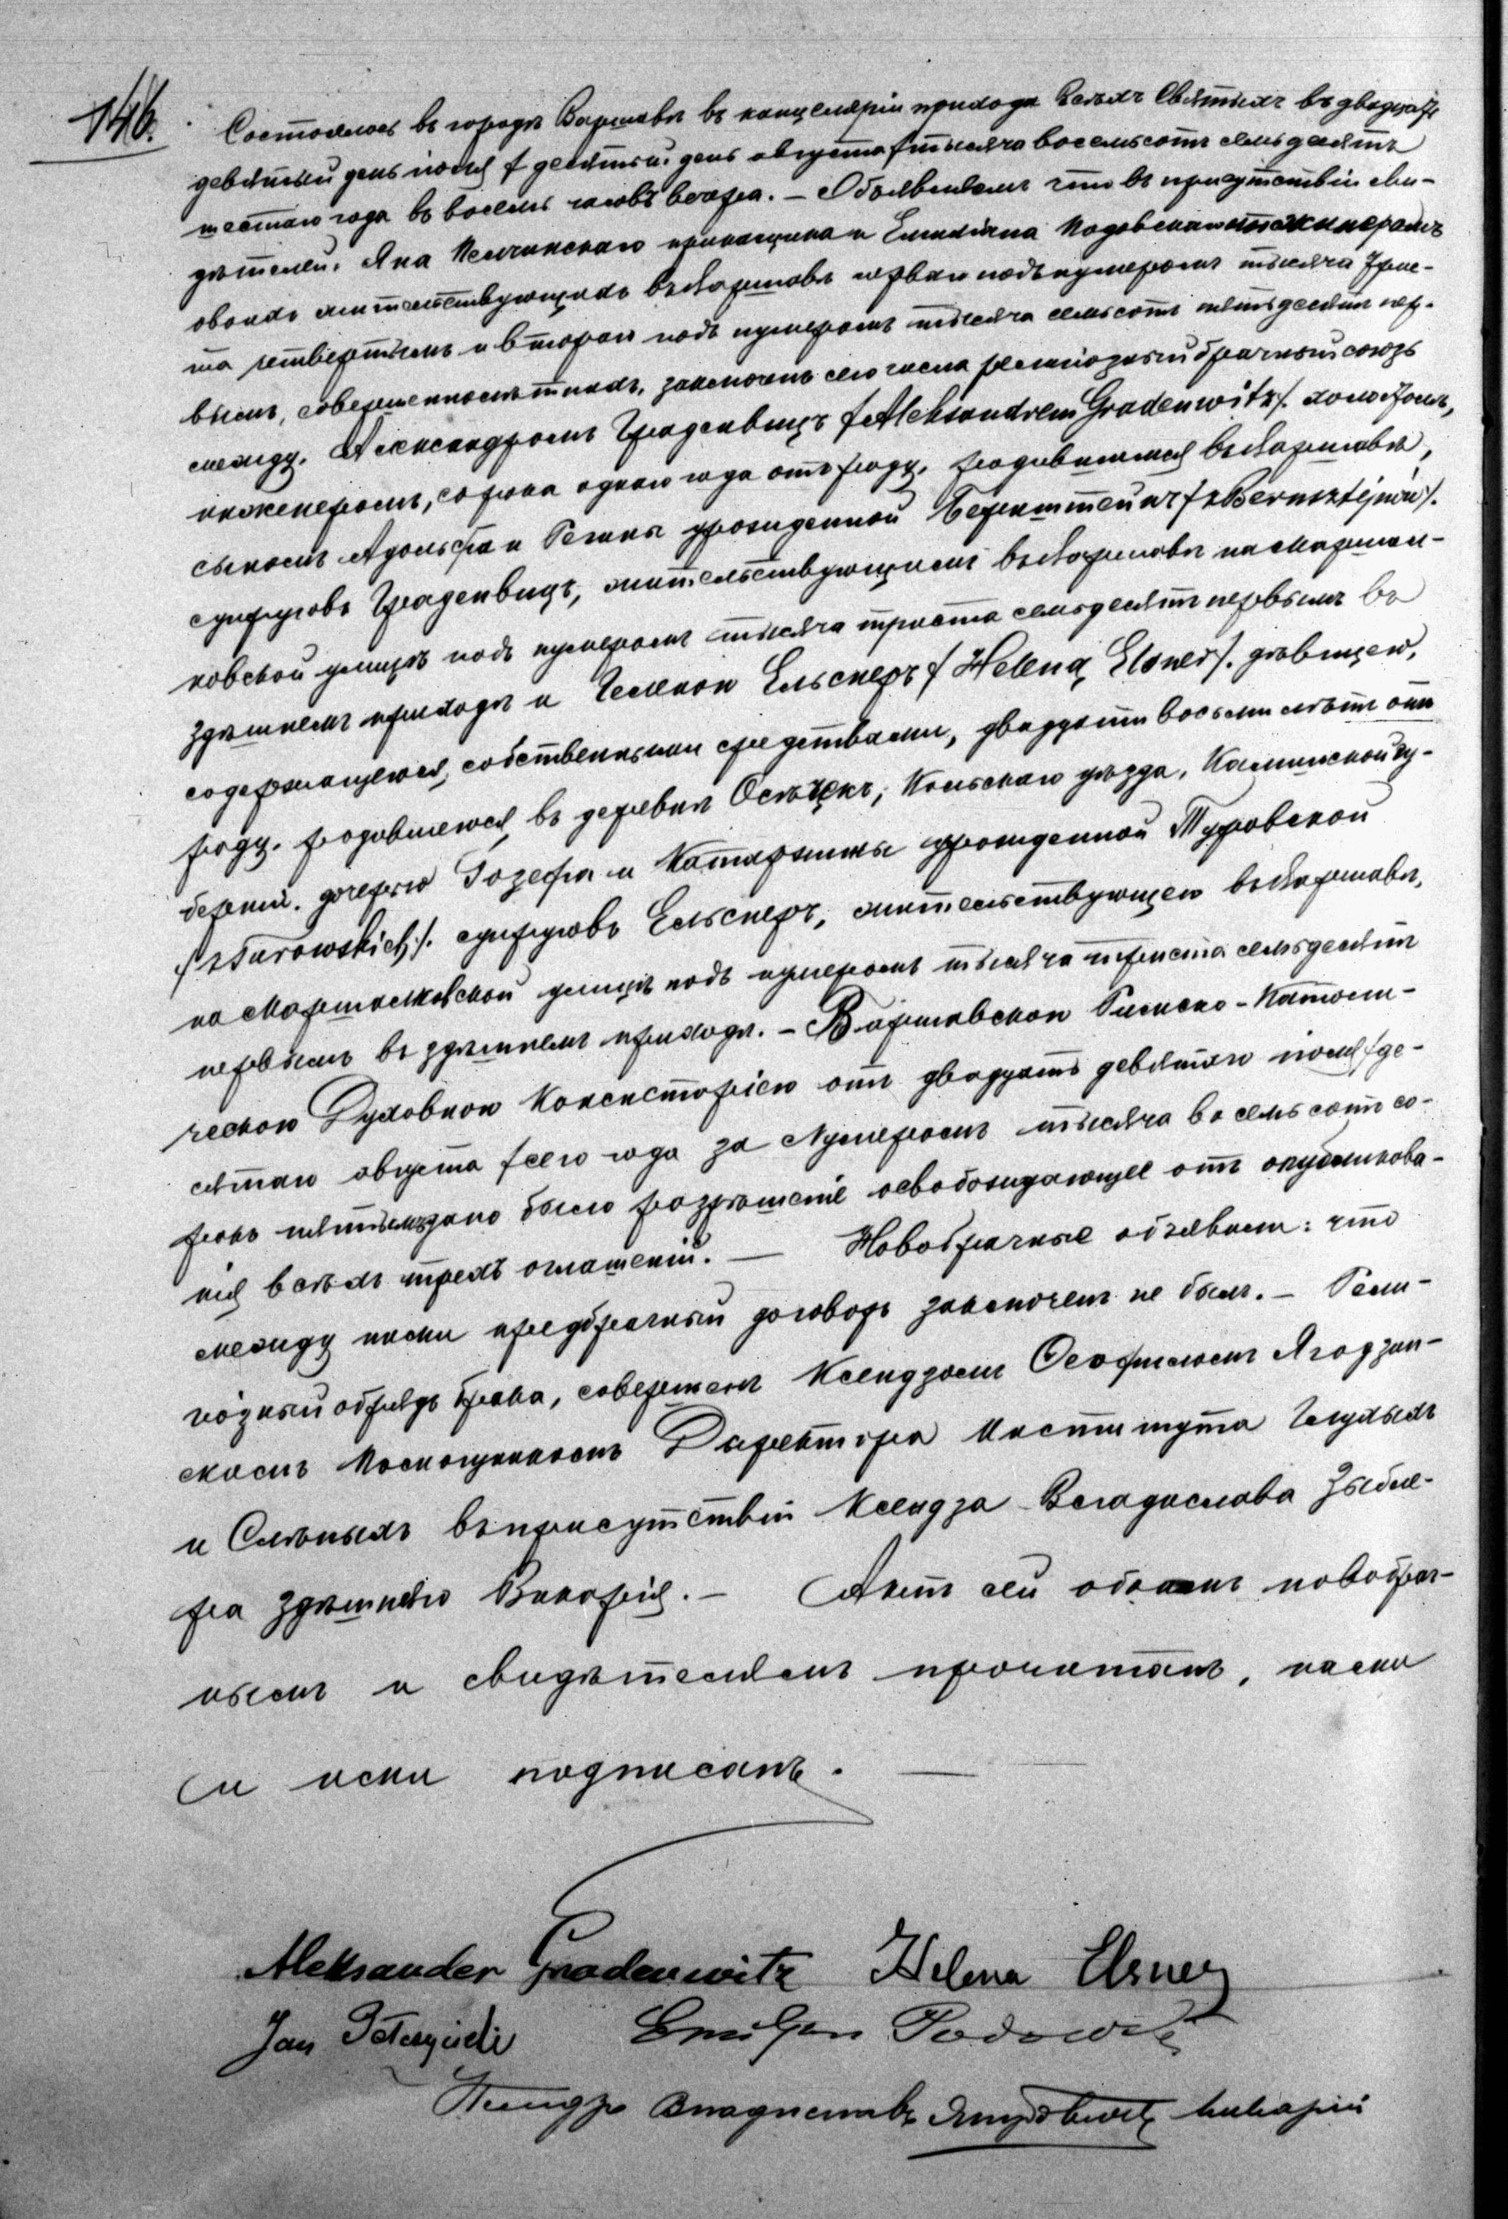 146.
Состоялось въ городѣ Варшавѣ въ канцеляріи прихода Всѣхъ Святыхъ въ двадцать
девятый день іюля / десятый день августа / тысяча восемьсотъ семьдесятъ
шестаго года въ восемь часовъ вечера. — Объявляемъ что въ присутствіи сви-
дѣтелей, Яна прикащика и Емиліана
обоихъ жительствующихъ въ Варшавѣ первый подъ нумеромъ тысяча трис-
та четвертымъ и второй подъ нумеромъ тысяча семьсотъ пятьдесятъ пер-
вымъ, совершеннолѣтнихъ, заключенъ сего числа религіозный брачный союзъ
между, Александромъ Граденвицъ /Aleksandrem Gradenwitz/. холостымъ,
инженеромъ, сорока одного года отъ роду, родившимся въ Варшавѣ,
сыномъ Адольфа и Регины урожденной Бернштейнъ /z Bernsztejnów/.
супруговъ Граденвицъ, жительствующимъ въ Варшавѣ на Маршал-
ковской улицѣ подъ нумеромъ тысяча триста семьдесятъ первымъ въ
здѣшнемъ приходѣ и Геленою Ельснеръ /Heleną Elsner/. дѣвицею,
содержащеюся собственными средствами, двадцати восьми лѣтъ отъ
роду, родившеюся въ деревнѣ Осѣчекъ, Кольскаго уѣзда, Калишской гу-
берніи, дочерью Іозефа и Катаржины урожденной Туровской
/z Turowskich/. супруговъ Ельснеръ, жительствующею въ Варшавѣ,
на Маршалковской улицѣ подъ нумеромъ тысяча триста семьдесятъ
первымъ въ здѣшнемъ приходѣ. — Варшавскою Римско-Католи-
ческою Духовною Консисторіею отъ двадцать девятаго іюля /де-
сятаго августа / сего года за Нумеромъ тысяча восемьсотъ со-
рокъ пятымъ дано было разрѣшеніе освобождающее отъ опубликова-
нія всѣхъ трехъ оглашеній. — Новобрачные объявили: что
между ними предбрачный договоръ заключенъ не былъ. — Рели-
гіозный обрядъ брака, совершенъ Ксендзомъ Ѳеофиломъ Ягодзин-
скимъ Директора Института Глухихъ
и Слѣпыхъ въ присутствіи Ксендза Владислава
ра здѣшняго Викарія. — Актъ сей обоимъ новобрач-
нымъ и свидѣтелямъ прочитанъ, нами
и ими подписанъ. —
Aleksander Gradenwitz Helena Elsner
Jan Emiljan
Ксендзъ Владиславъ Викарій